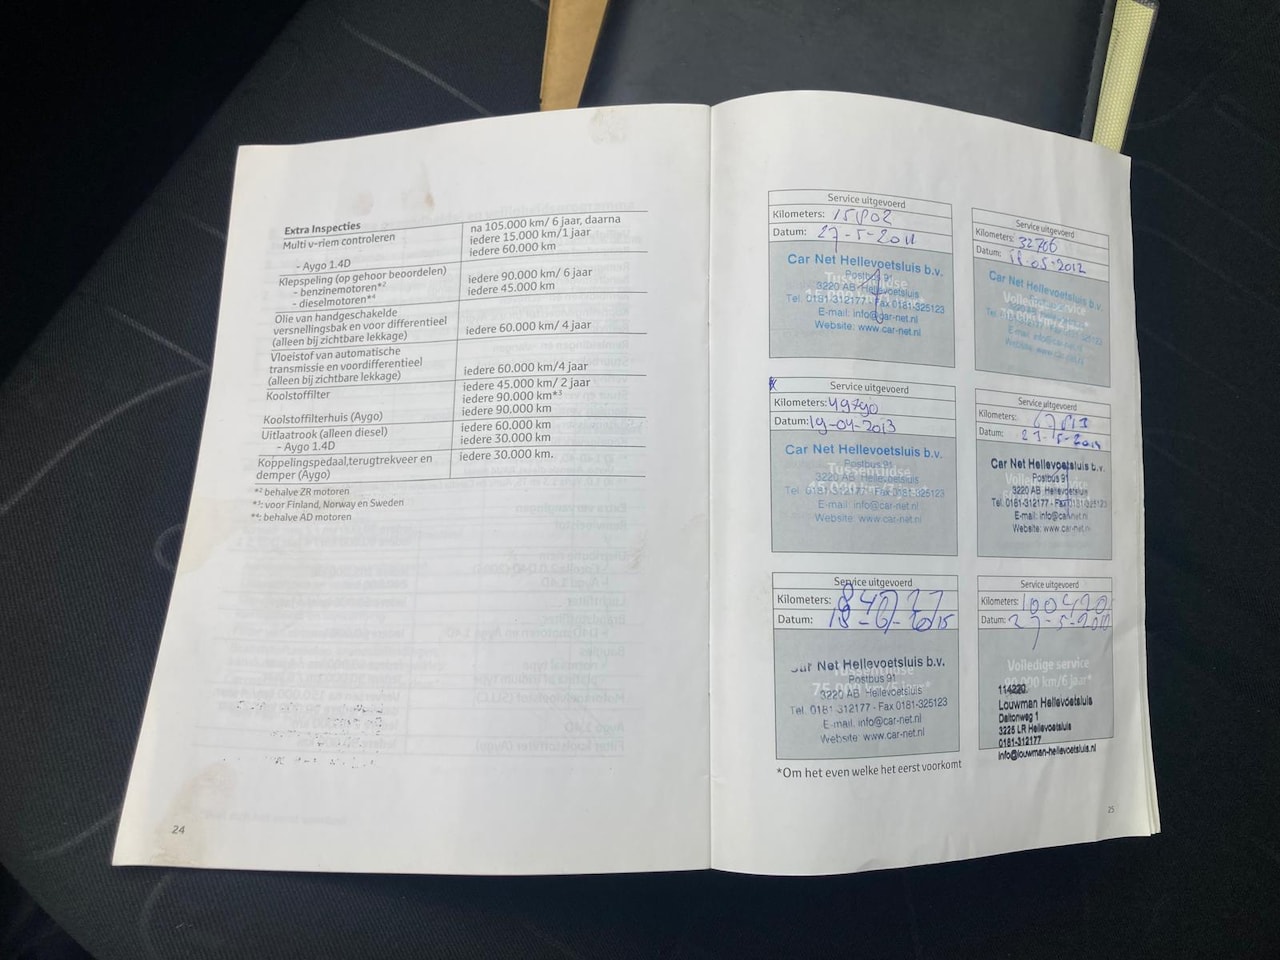 Extra Inspecties
Multi v-riem controleren
na 105.000 km/ 6 jaar, daarna
iedere 15.000 km/1 jaar
- Aygo 1.4D
iedere 60.000 km
Klepspeling (op gehoor beoordelen)
- benzinemotoren*²
iedere 90.000 km/ 6 jaar
- dieselmotoren*⁴
iedere 45.000 km
Olie van handgeschakelde
versnellingsbak en voor differentieel
(alleen bij zichtbare lekkage)
iedere 60.000 km/ 4 jaar
Vloeistof van automatische
transmissie en voordifferentieel
(alleen bij zichtbare lekkage)
iedere 60.000 km/4 jaar
Koolstoffilter
iedere 45.000 km/ 2 jaar
iedere 90.000 km*³
Koolstoffilterhuis (Aygo)
iedere 90.000 km
Uitlaatrook (alleen diesel)
iedere 60.000 km
- Aygo 1.4D
iedere 30.000 km
Koppelingspedaal,terugtrekveer en
demper (Aygo)
iedere 30.000 km.
*² behalve ZR motoren
*³: voor Finland, Norway en Sweden
*⁴: behalve AD motoren
24
Service uitgevoerd
Kilometers:
Datum: 27-5-2011
Tussentijdse
Car Net Hellevoetsluis b.v.
Postbus 91
3220 AB Hellevoetsluis
Tel. 0181-312177 - Fax 0181-325123
E-mail: info@car-net.nl
Website: www.car-net.nl
Service uitgevoerd
Kilometers: 32706
Datum: 11-05-2012
Volledige service
Car Net Hellevoetsluis b.v.
Website: www.car-net.nl
Service uitgevoerd
Kilometers: 49790
Datum: 19-04-2013
Tussentijdse
Car Net Hellevoetsluis b.v.
Postbus 91
3220 AB Hellevoetsluis
Tel. 0181-312177 - Fax 0181-325123
E-mail: info@car-net.nl
Website: www.car-net.nl
Service uitgevoerd
Kilometers:
Datum:
Car Net Hellevoetsluis b.v.
Postbus 91
3220 AB Hellevoetsluis
Tel. 0181-312177 - Fax 0181-325123
E-mail: info@car-net.nl
Website: www.car-net.nl
Service uitgevoerd
Kilometers:
Datum:
Tussentijdse
75.000 km/5 jaar*
Net Hellevoetsluis b.v.
Postbus 91
3220 AB Hellevoetsluis
Tel. 0181-312177 - Fax 0181-325123
E-mail: info@car-net.nl
Website: www.car-net.nl
Service uitgevoerd
Kilometers:
Datum:
Volledige service
90.000 km/6 jaar*
114220
Louwman Hellevoetsluis
Daltonweg 1
3225 LR Hellevoetsluis
0181-312177
info@louwman-hellevoetsluis.nl
*Om het even welke het eerst voorkomt
25